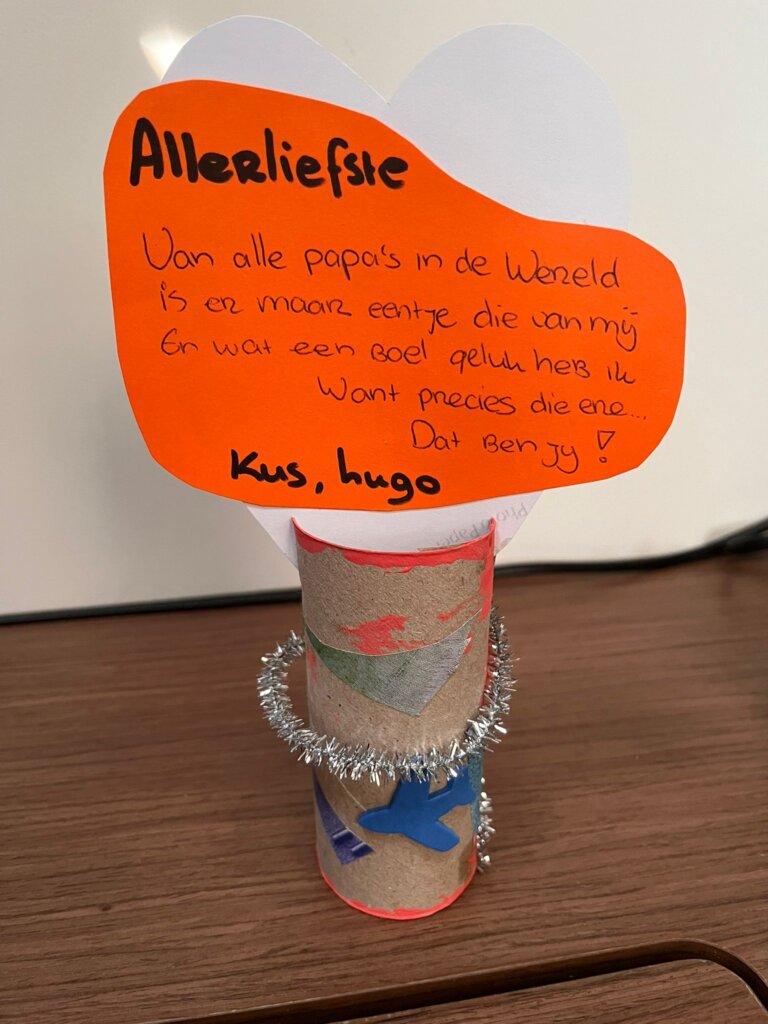 Allerliefste
Van alle papa's in de Wereld
is er maar eentje die van mij
En wat een Boel geluk heB ik
Want precies die ene...
Dat Ben jij!
Kus, hugo
Photo Paper